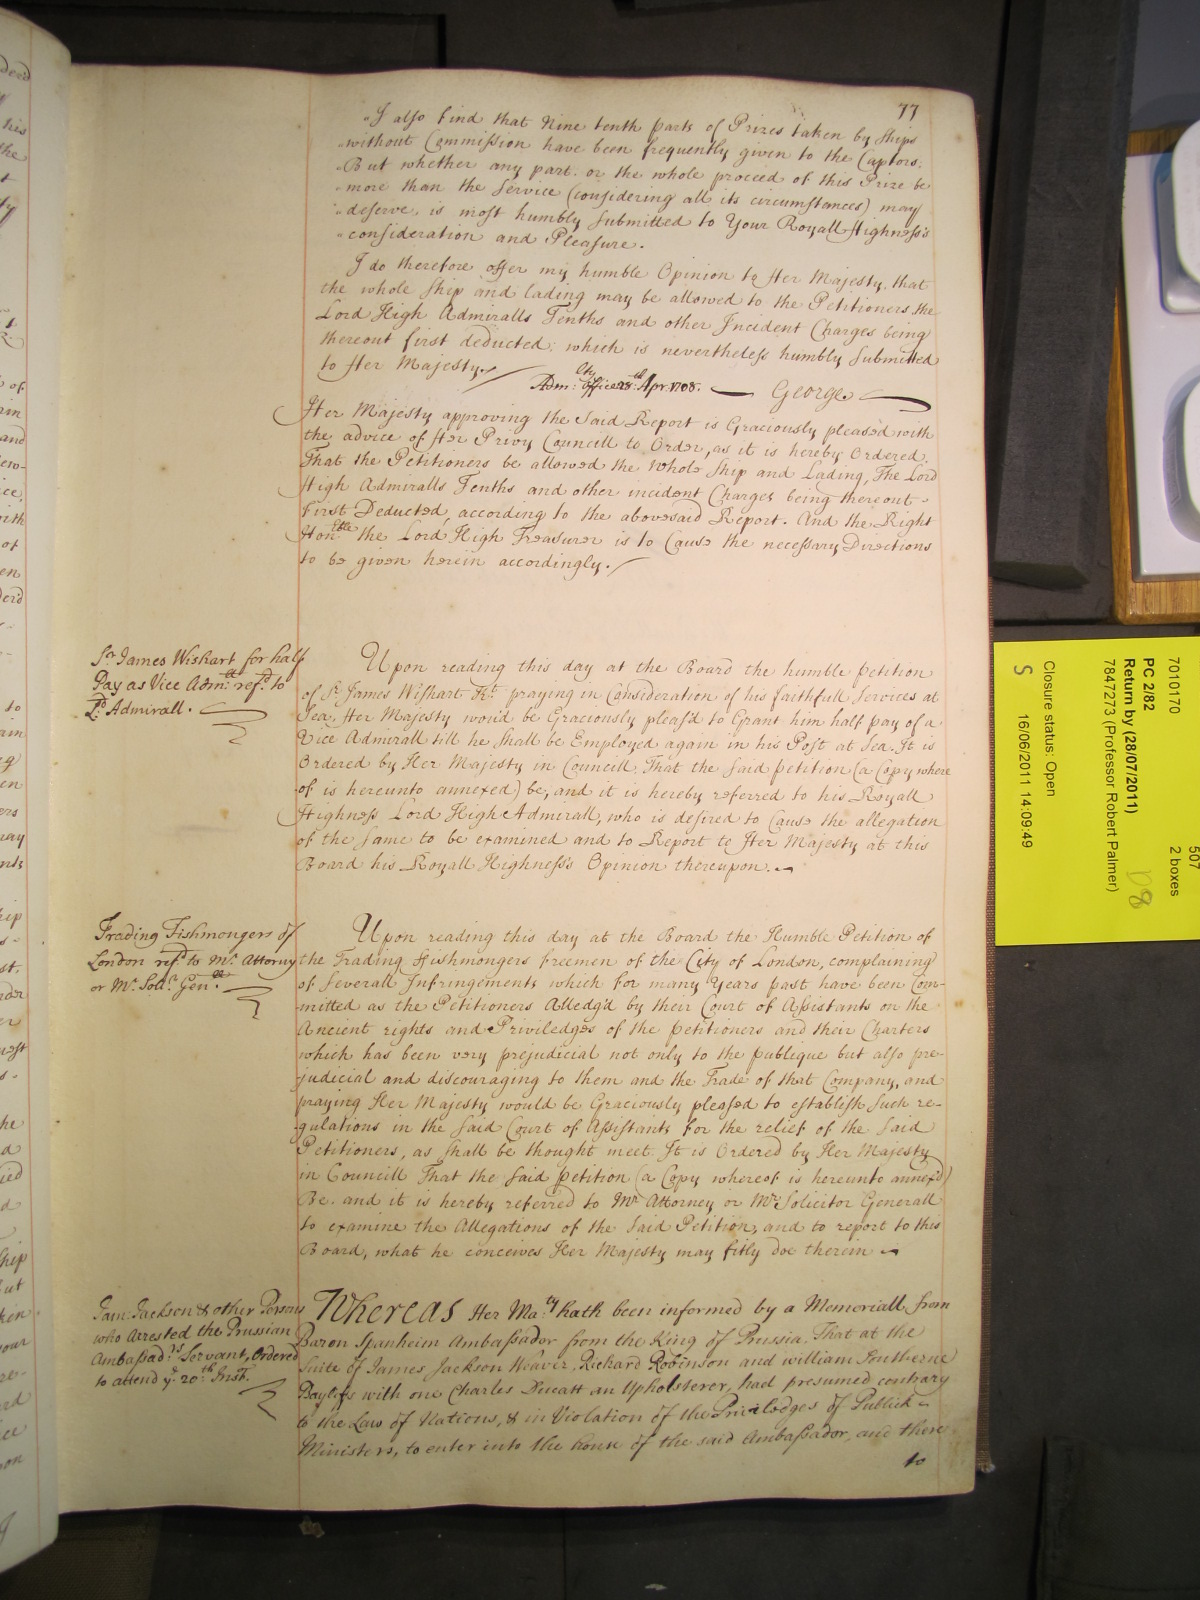 77
"I also find that Nine tenth parts of Prizes taken by Ships
"without Commission have been frequently given to the Captors.
"But whether any part. or the whole proceed of this Prize be
"more than the Service (considering all its circumstances) may
"deserve, is most humbly Submitted to Your Royall Highness's
"consideration and Pleasure.
I do therefore offer my humble Opinion to Her Majesty, that
the whole Ship and Lading may be allowed to the Petitioners, the
Lord High Admiralls Tenths and other Incident Charges being
thereout first deducted; which is nevertheless humbly Submitted
to Her Majesty.
Adm:lty Office 28th Apr. 1708. George
Her Majesty approving the Said Report is Graciously pleased with
the advice of Her Privy Councill to Order, as it is hereby Ordered.
That the Petitioners be allowed the whole Ship and Lading, The Lord
High Admiralls Tenths and other incident Charges being thereout
First Deducted, according to the abovesaid Report. And the Right
Honble the Lord High Treasurer is to Cause the necessary Directions
to be given herein accordingly.
Sr James Wishart for half
Pay as Vice Adm:ll ref:d to
L:d Admirall.
Upon reading this day at the Board the humble Petition
of Sr James Wishart Kt praying in Consideration of his faithfull Services at
Sea, Her Majesty would be Graciously pleas'd to Grant him half pay of a
Vice Admirall till he Shall be Employed again in his Post at Sea. It is
Ordered by Her Majesty in Councill, That the Said petition (a Copy where
of is hereunto annexed) be, and it is hereby referred to his Royall
Highness Lord High Admirall, who is desired to Cause the allegation
of the Same to be examined and to Report to Her Majesty at this
Board his Royall Highness's Opinion thereupon.
Trading Fishmongers of
London ref:d to Mr Attorny
or Mr Soll:r Gen:ll
Upon reading this day at the Board the Humble Petition of
the Trading Fishmongers Freemen of the City of London, complaining
of Severall Infringements which for many Years past have been Com-
mitted as the Petitioners Alledg'd by their Court of Assistants on the
Ancient rights and Priviledges of the Petitioners and their Charters
which has been very prejudicial not only to the publique but also pre-
judicial and discouraging to them and the Trade of that Company, and
praying Her Majesty would be Graciously pleased to establish Such re-
gulations in the Said Court of Assistants for the relief of the Said
Petitioners, as Shall be thought meet. It is Ordered by Her Majesty
in Councill That the Said Petition (a Copy whereof is hereunto annex'd)
Be. and it is hereby referred to Mr Attorney or Mr Solicitor Generall
to examine the Allegations of the Said Petition, and to report to this
Board, what he conceives Her Majesty may fitly doe therein
Jam: Jackson & other Persons
who Arrested the Prussian
Ambassad:rs Servant, Ordered
to attend ye 20th Inst.
Whereas Her Ma:ty hath been informed by a Memoriall from
Baron Spanheim Ambassador from the King of Prussia. That at the
Suite of James Jackson Weaver, Richard Robinson and William Southerne
Baylifs with one Charles Ducatt an Upholsterer, had presumed contrary
to the Law of Nations, & in Violation of the Priviledges of Publick
Ministers, to enter into the house of the said Ambassador, and there
to
507
2 boxes
7010170
PC 2/82
Return by (28/07/2011)
7847273 (Professor Robert Palmer)
D8
Closure status: Open
16/06/2011 14:09:49
S